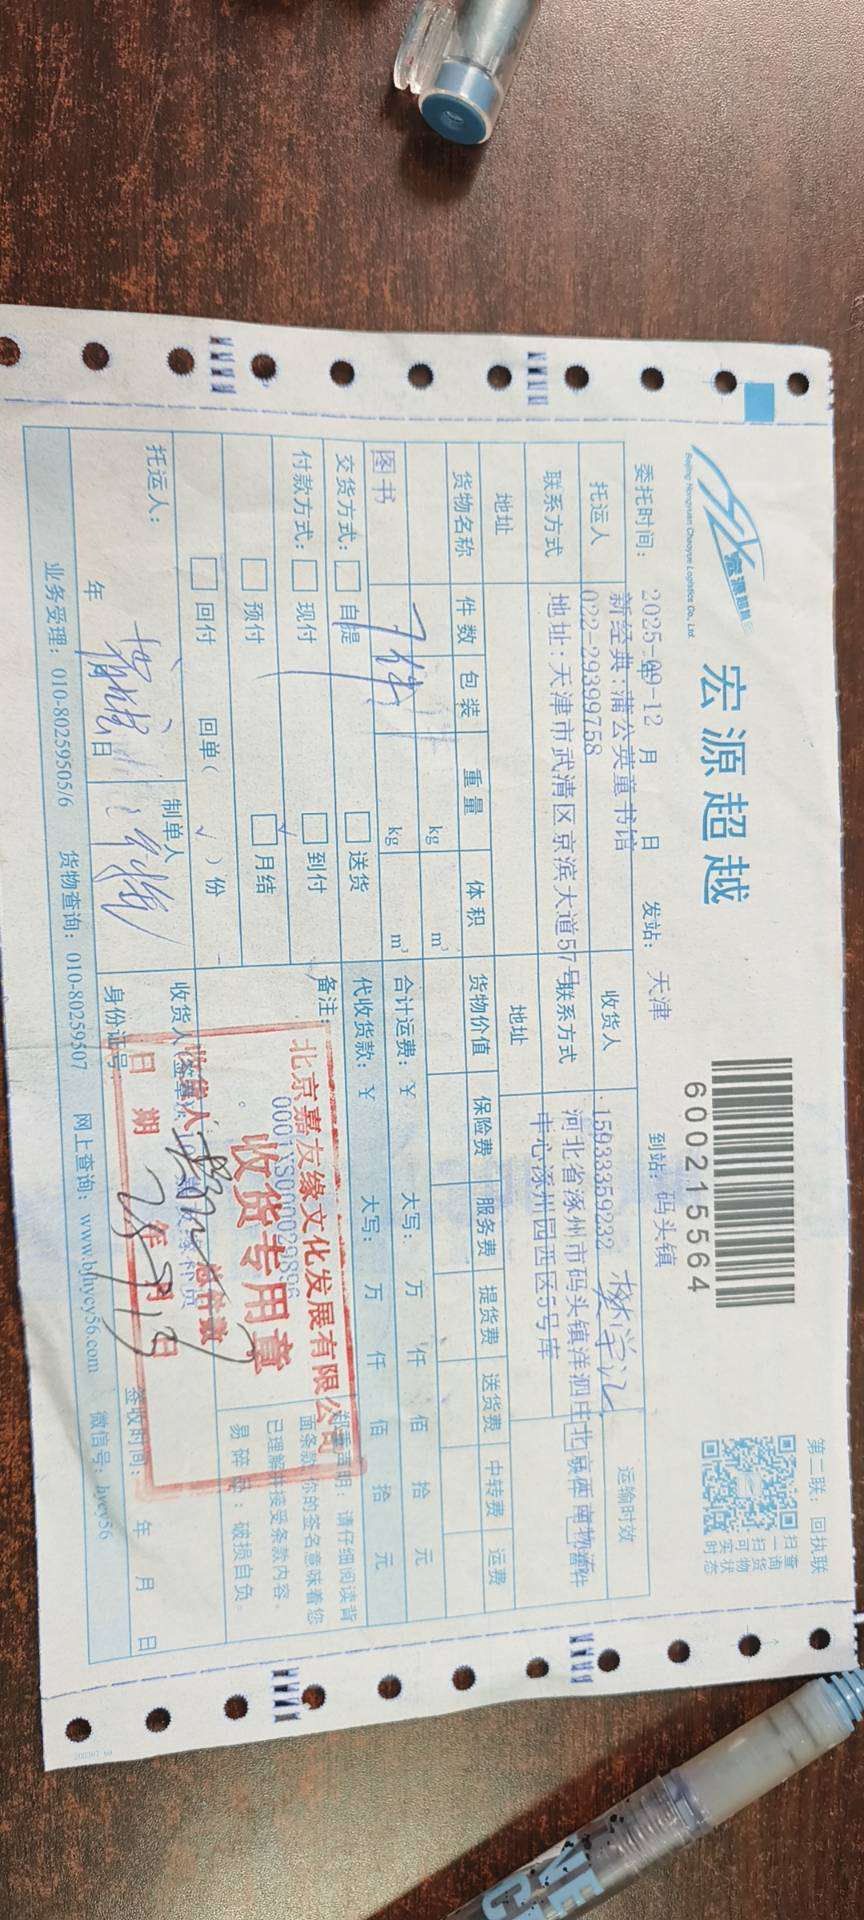 宏源超越
Beijing Hongyuan Chaoyue Logistics Co., Ltd
宏源超越
600215564
第二联：回执联
扫一扫可实时
查询货物状态
委托时间：2025-09-12 年 月 日 发站：天津 到站：码头镇
托运人 新经典：蒲公英童书馆 收货人 15933359232 运输时效
联系方式 022-29399758 联系方式
地址 地址：天津市武清区京滨大道57号 地址 河北省涿州市码头镇洋泗庄北京西南物流
中心涿州园西区5号库
货物名称 件数 包装 重量 体积 货物价值 保险费 服务费 提货费 送货费 中转费 运费
kg m³
图书 7件 kg m³ 合计运费：¥ 大写： 万 仟 佰 拾 元
交货方式： 自提 送货 代收货款：¥ 大写： 万 仟 佰 拾 元
付款方式： 现付 到付 备注：
预付 月结
回付 回单（√）份
郑重声明：请仔细阅读背
面条款，你的签名意味着您
已理解并接受条款内容。
易碎品：破损自负。
北京嘉友缘文化发展有限公司
收货专用章
收货人
日期 年 月 日
托运人： 年 日 制单人
收货人
身份证号： 签收时间： 年 月 日
业务受理：010-80259505/6 货物查询：010-80259507 网上查询：www.bjhycy56.com 微信号：hycy56